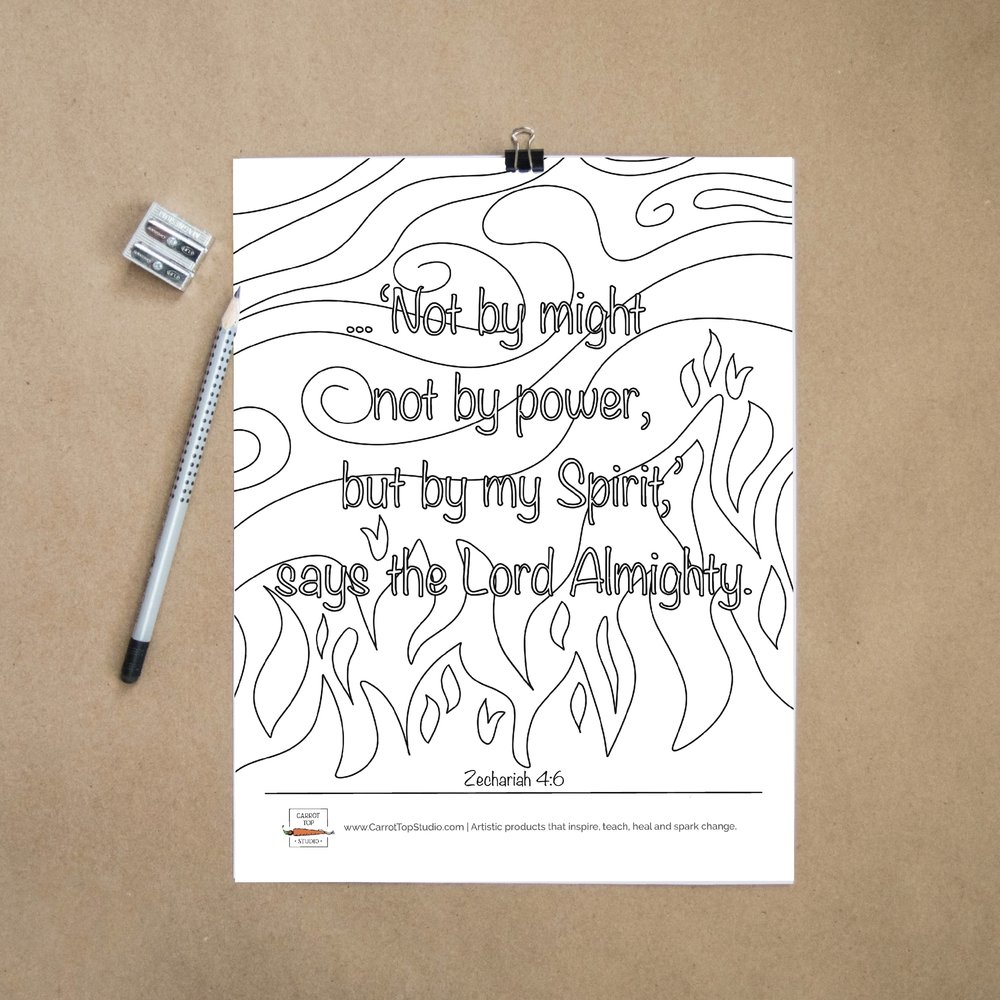 ... ‘Not by might
not by power,
but by my Spirit,’
says the Lord Almighty.
Zechariah 4:6
CARROT
TOP
• STUDIO •
www.CarrotTopStudio.com | Artistic products that inspire, teach, heal and spark change.